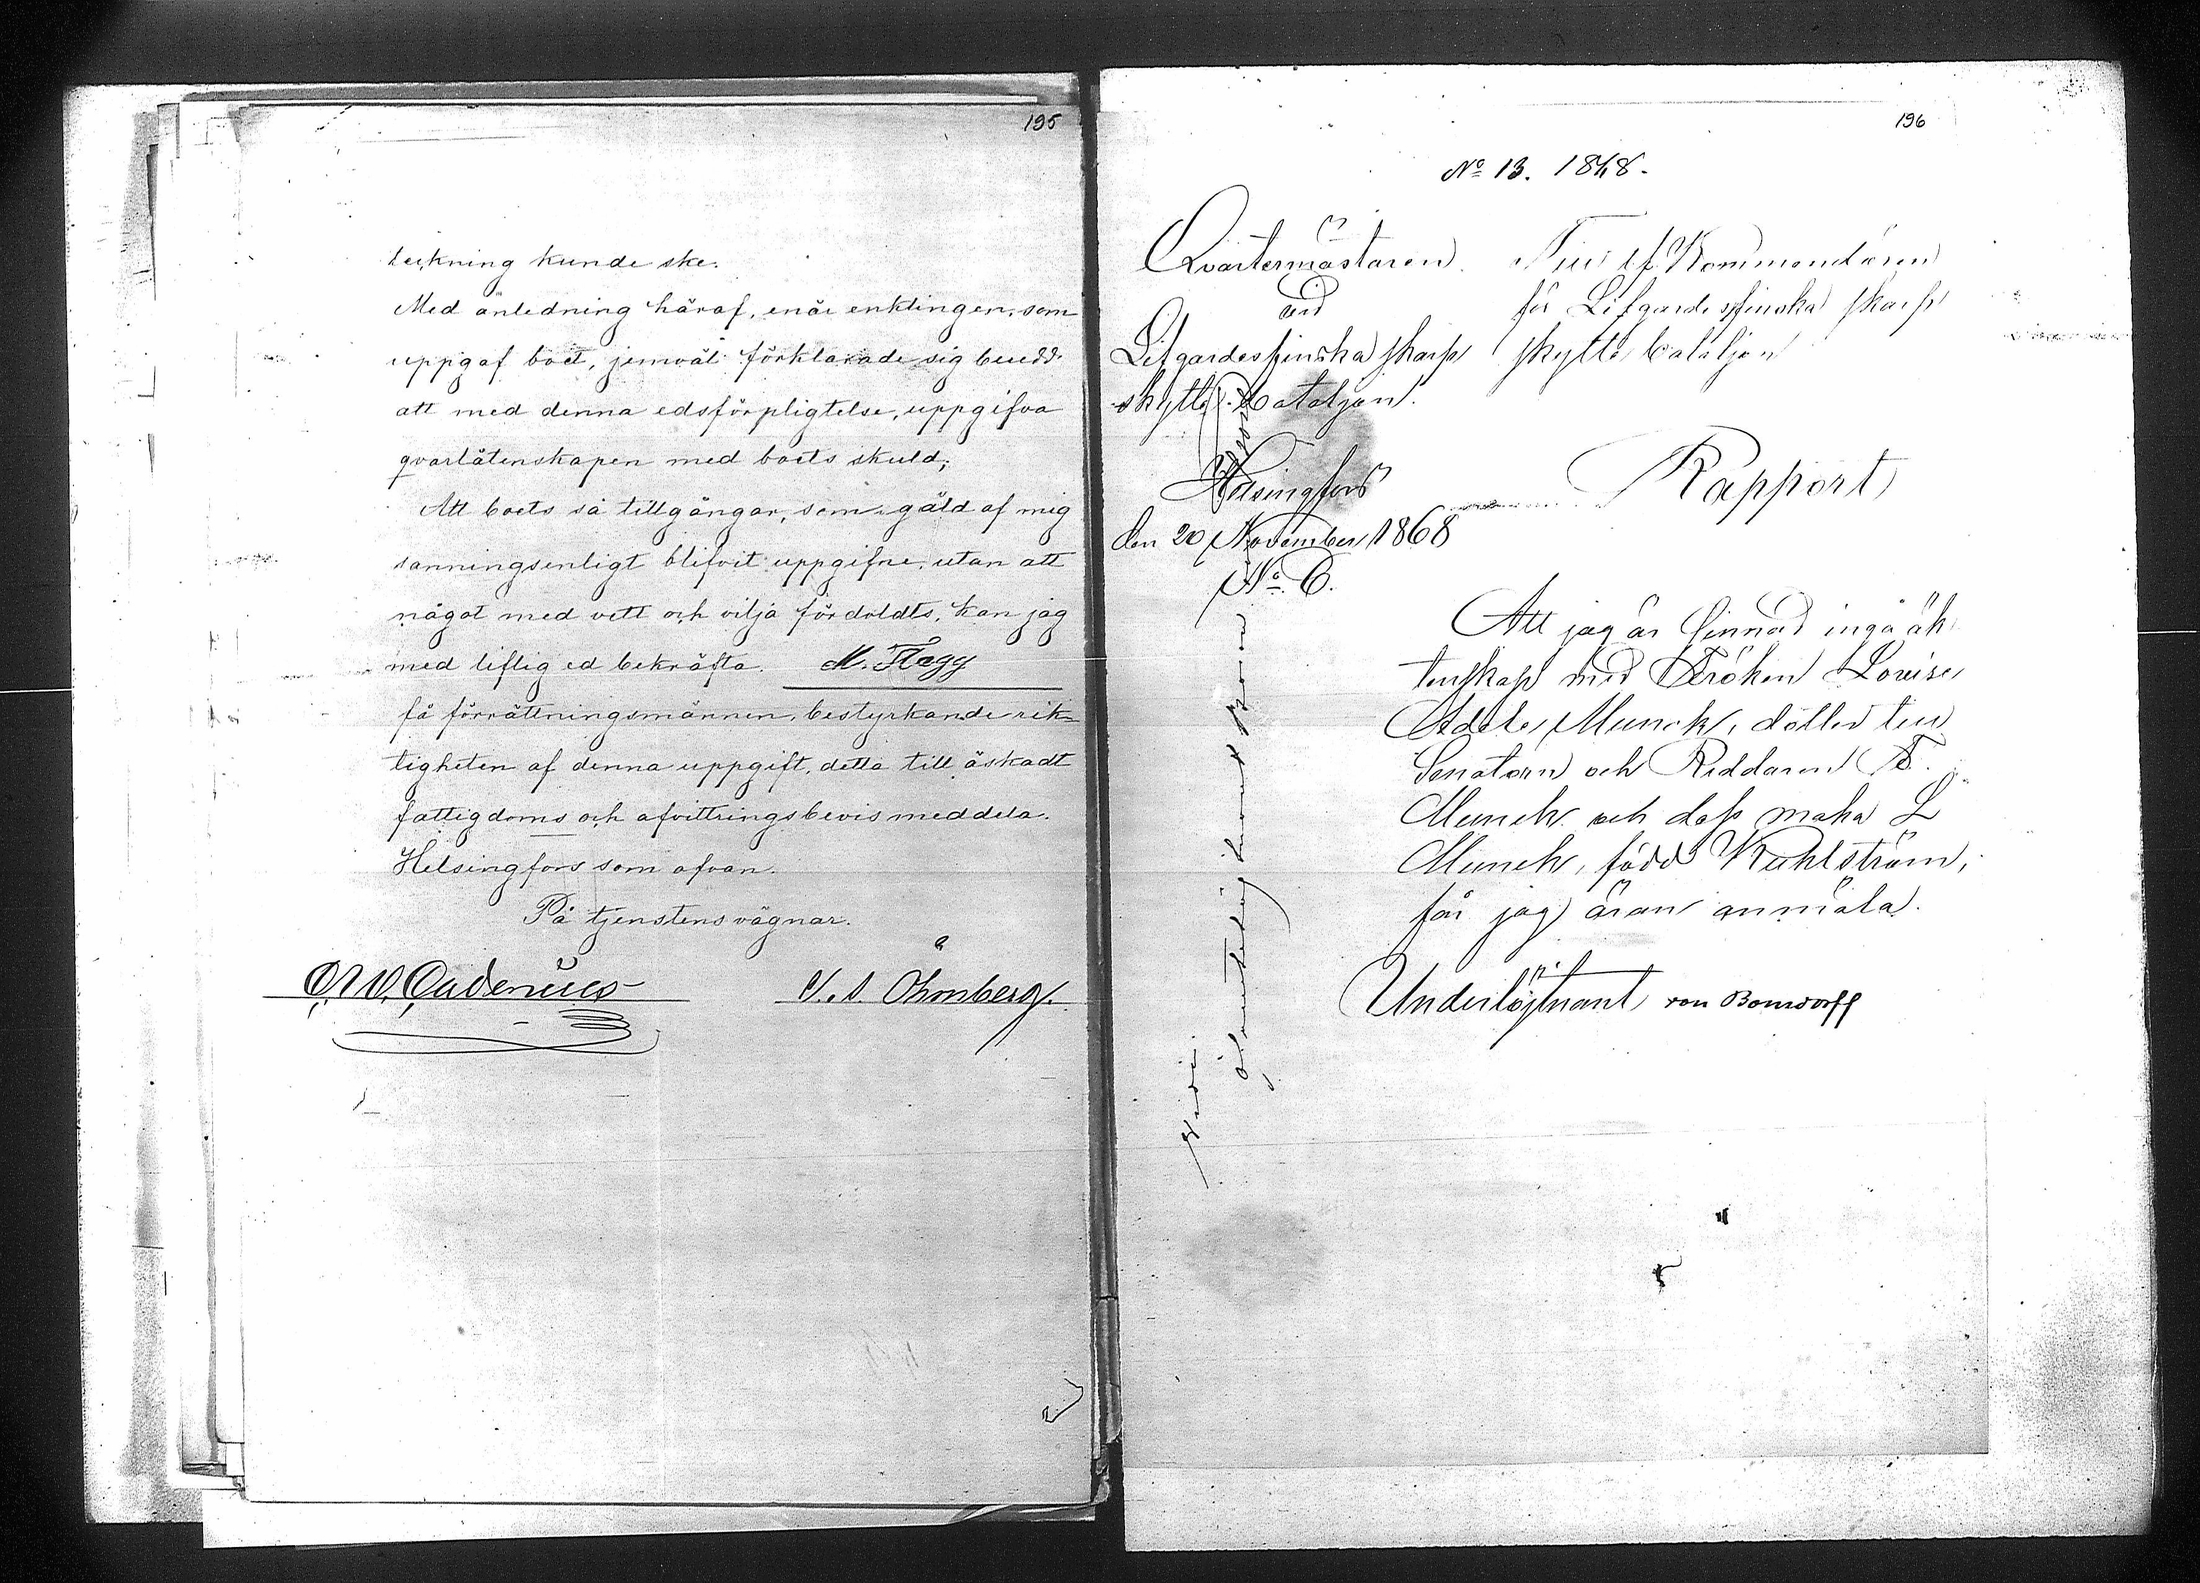 195
teckning kunde ske.
Med anledning häraf, enär enklingen, som
uppgaf boet, jemväl förklarade sig beredd
att med denna edsförpligtelse, uppgifva
qvarlåtenskapen med boets skuld;
Att boets så tillgångar, som gäld af mig
sanningsenligt blifvit uppgifne, utan att
något med vett och vilja fördoldts, kan jag
med liflig ed bekräfta. M. Flagg
få förrättningsmännen, bestyrkande rik-
tigheten af denna uppgift, detta till äskadt
fattigdoms och afvittringsbevis meddela.
Helsingfors som ofvan.
På tjenstens vägnar.
Cadenius
Öhmberg.
196
No 13. 1868.
Qvartermästaren
vid
Lifgardes finska skarp
skytte bataljon.
Helsingfors
den 20 November 1868
No 6.
Till tf Kommendören
för Lifgardes finska skarp
skytte bataljon
Rapport
Att jag är sinnad ingå äk
tenskap med Fröken Lovise
Adele Munck, dotter till
Senatorn och Riddaren A.
Munck och dess maka L
Munck, född Wahlström,
får jag äran anmäla.
Underlöjtnant von Bonsdorff